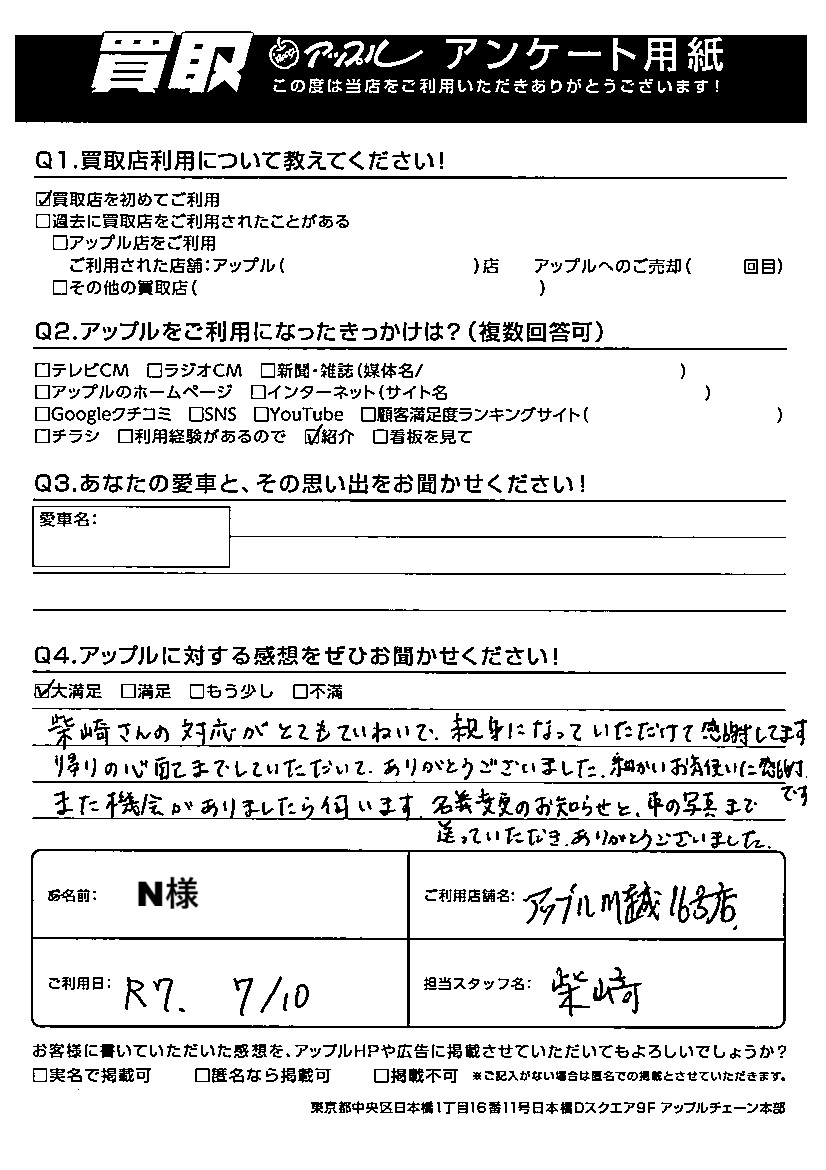 買取 アップル アンケート用紙
この度は当店をご利用いただきありがとうございます!
Q1.買取店利用について教えてください!
☑買取店を初めてご利用
□過去に買取店をご利用されたことがある
□アップル店をご利用
ご利用された店舗:アップル( )店 アップルへのご売却( 回目)
□その他の買取店( )
Q2.アップルをご利用になったきっかけは?(複数回答可)
□テレビCM □ラジオCM □新聞・雑誌(媒体名/ )
□アップルのホームページ □インターネット(サイト名 )
□Googleクチコミ □SNS □YouTube □顧客満足度ランキングサイト( )
□チラシ □利用経験があるので ☑紹介 □看板を見て
Q3.あなたの愛車と、その思い出をお聞かせください!
愛車名:
Q4.アップルに対する感想をぜひお聞かせください!
☑大満足 □満足 □もう少し □不満
柴崎さんの対応がとてもていねいで、親身になっていただけて感謝してます
帰りの心配までしていただいて、ありがとうございました。細かいお気使いに感謝
です
また機会がありましたら伺います。名義変更のお知らせと、車の写真まで
送っていただき、ありがとうございました。
お名前: N様
ご利用店舗名: アップル川越16号店
ご利用日: R7. 7/10
担当スタッフ名: 柴崎
お客様に書いていただいた感想を、アップルHPや広告に掲載させていただいてもよろしいでしょうか?
□実名で掲載可 □匿名なら掲載可 □掲載不可 ※ご記入がない場合は匿名での掲載とさせていただきます。
東京都中央区日本橋1丁目16番11号日本橋Dスクエア9F アップルチェーン本部